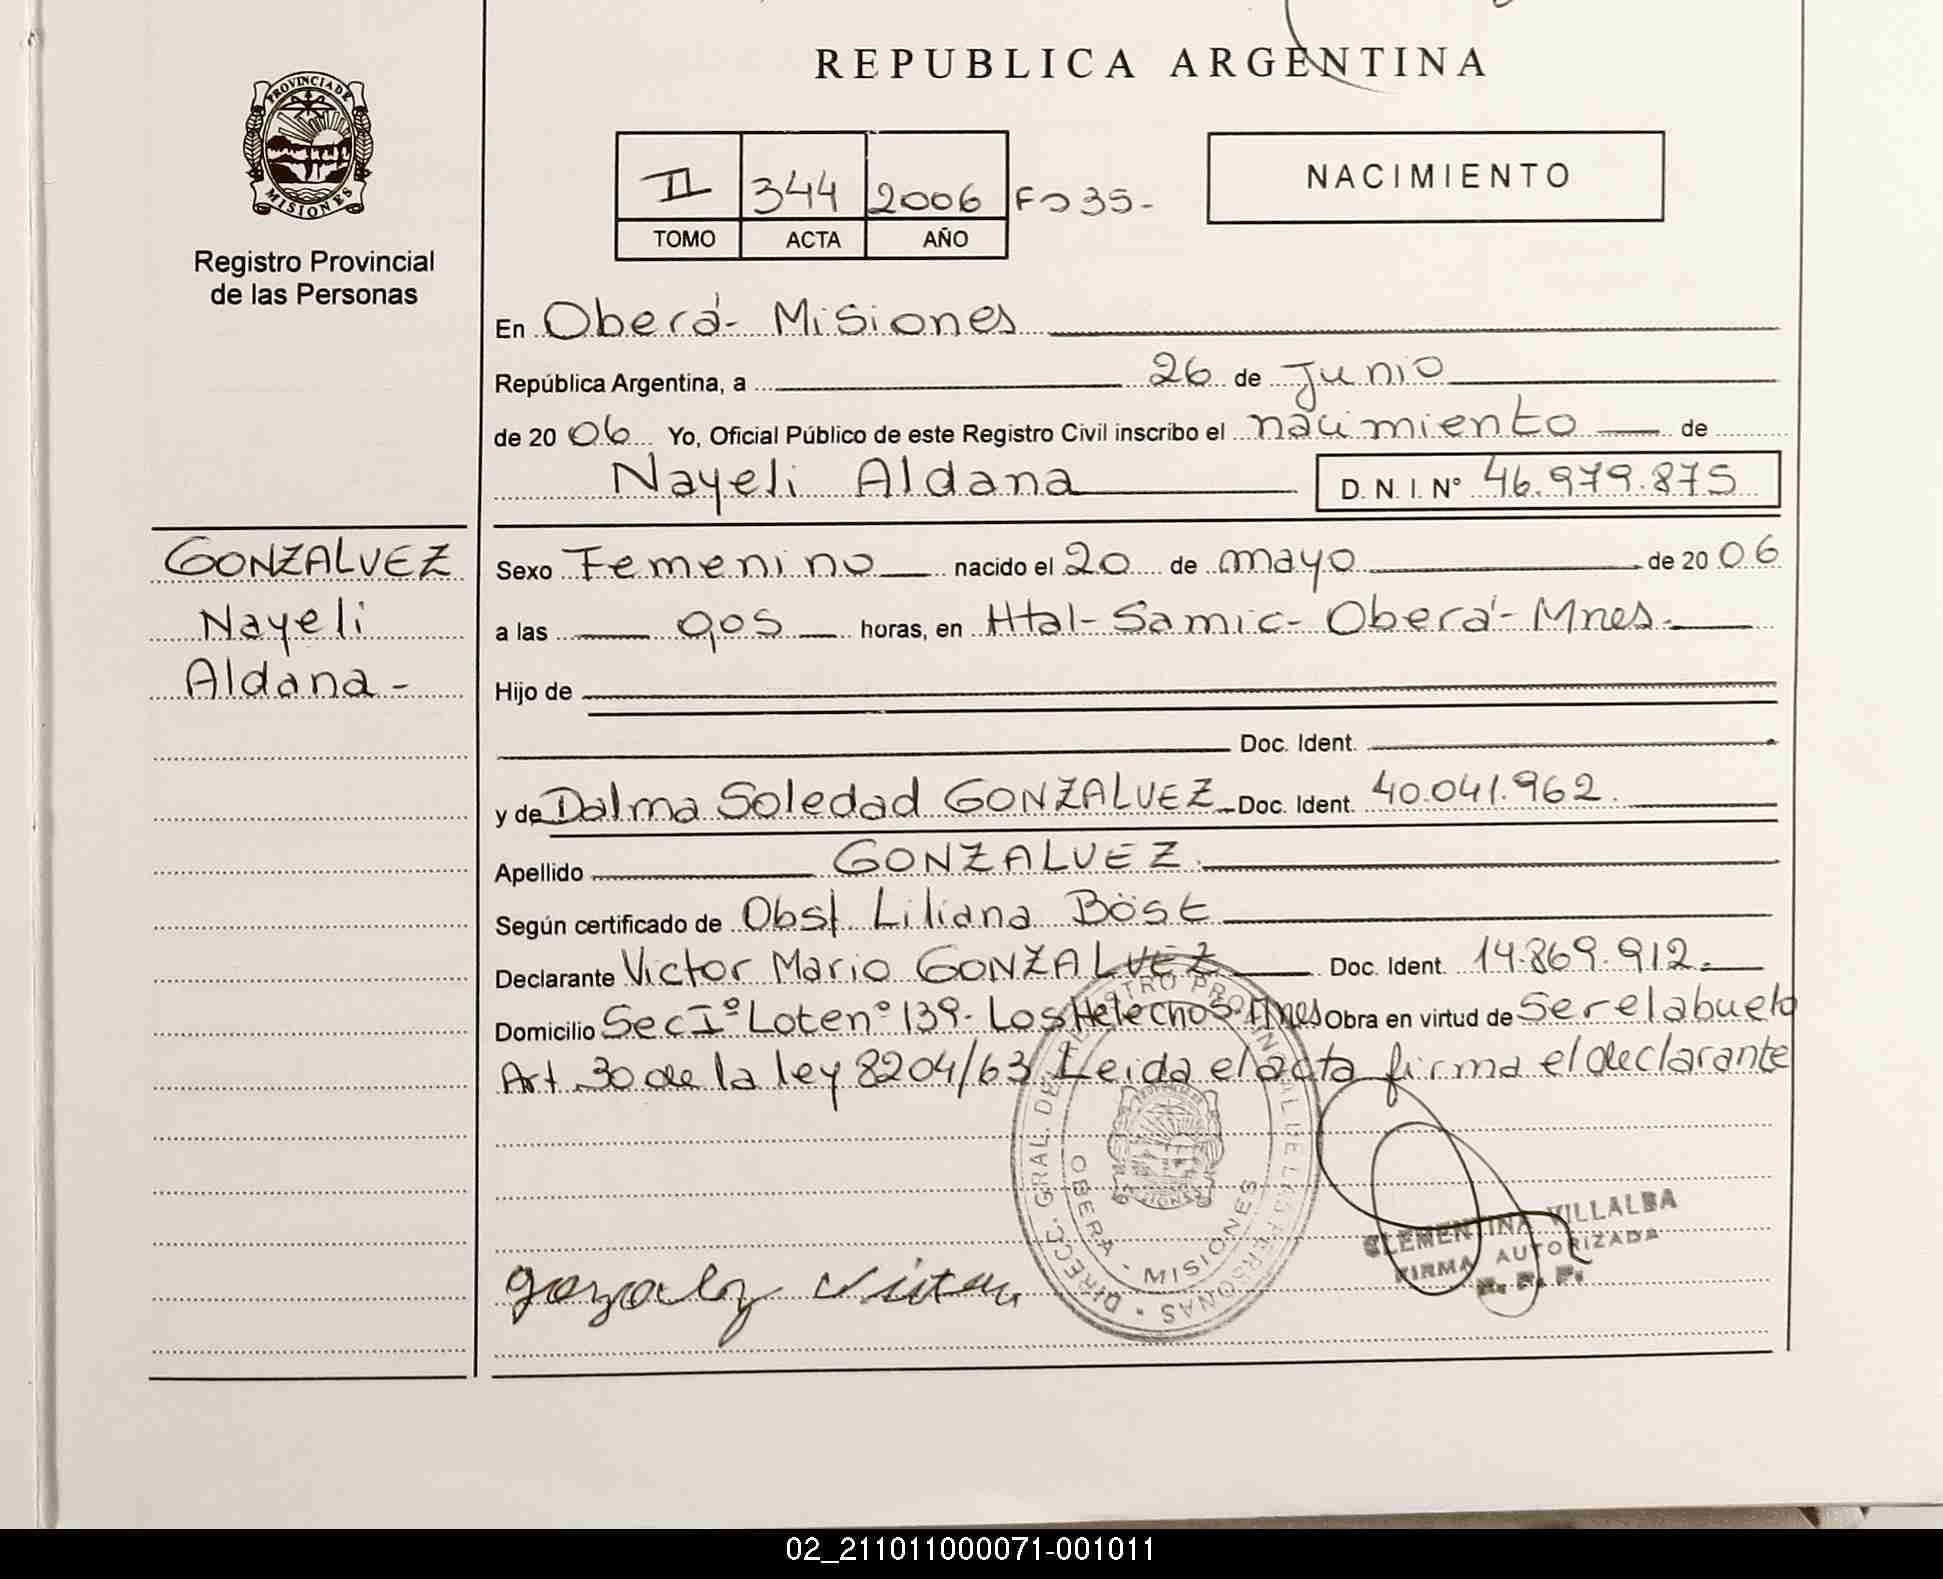 REPUBLICA ARGENTINA
PROVINCIA DE MISIONES
Registro Provincial
de las Personas
II 344 2006 Fº 35-
TOMO ACTA AÑO
NACIMIENTO
En Oberá- Misiones
República Argentina, a 26 de Junio
de 20 06 Yo, Oficial Público de este Registro Civil inscribo el nacimiento de
Nayeli Aldana D. N. I. Nº 46.979.875
GONZALVEZ
Nayeli
Aldana-
Sexo Femenino nacido el 20 de mayo de 20 06
a las 9,05 horas, en Htal- Samic- Oberá- Mnes.
Hijo de
Doc. Ident.
y de Dalma Soledad GONZALVEZ Doc. Ident. 40.041.962.
Apellido GONZALVEZ.
Según certificado de Obst. Liliana Böst
Declarante Victor Mario GONZALVEZ Doc. Ident. 14.869.912.
Domicilio Sec Iº Lote nº 139- Los Helechos- Mnes Obra en virtud de Ser el abuelo
Art 30 de la ley 8204/63 Leida el acta firma el declarante
DIRECC. GRAL. DEL REGISTRO PROVINCIAL DE LAS PERSONAS
OBERA - MISIONES
CLEMENTINA VILLALBA
FIRMA AUTORIZADA
R. P. P.
02_211011000071-001011